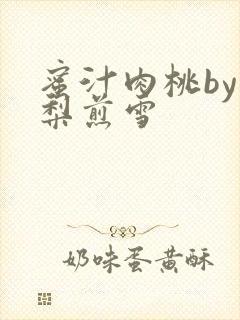 蜜汁肉桃by
梨煎雪
奶味蛋黄酥